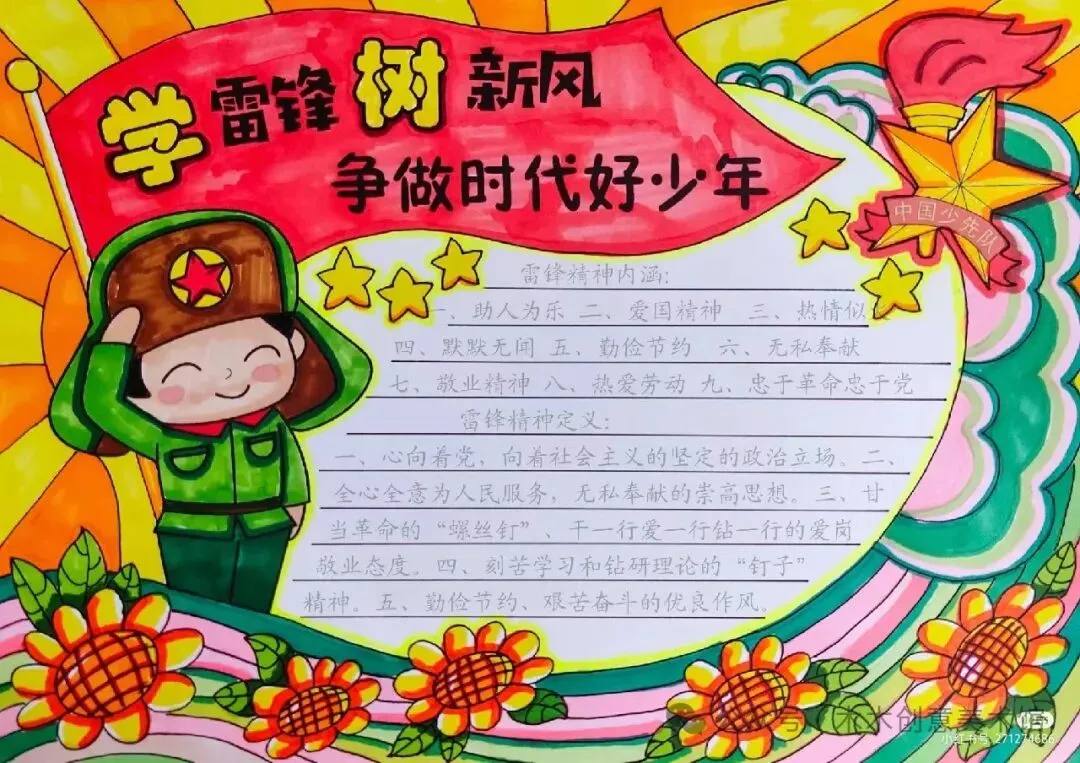 学雷锋树新风
争做时代好少年
中国少先队
雷锋精神内涵:
一、助人为乐 二、爱国精神 三、热情似
四、默默无闻 五、勤俭节约 六、无私奉献
七、敬业精神 八、热爱劳动 九、忠于革命忠于党
雷锋精神定义:
一、心向着党,向着社会主义的坚定的政治立场。二、
全心全意为人民服务,无私奉献的崇高思想。三、甘
当革命的“螺丝钉”、干一行爱一行钻一行的爱岗
敬业态度。四、刻苦学习和钻研理论的“钉子”
精神。五、勤俭节约、艰苦奋斗的优良作风。
木木创意美术
小红书号 271274686